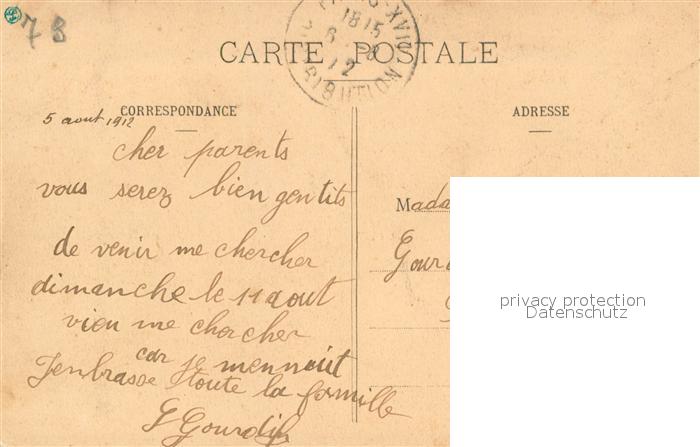 78
CARTE POSTALE
1815
6 - 8
12
DISTRIBUTION
CORRESPONDANCE
ADRESSE
5 aout 1912
cher parents
vous serez bien gentits
de venir me chercher
dimanche le 11 aout
vien me chercher
car je mennuit
Jenbrasse toute la famille
Mada
Gour
privacy protection
Datenschutz